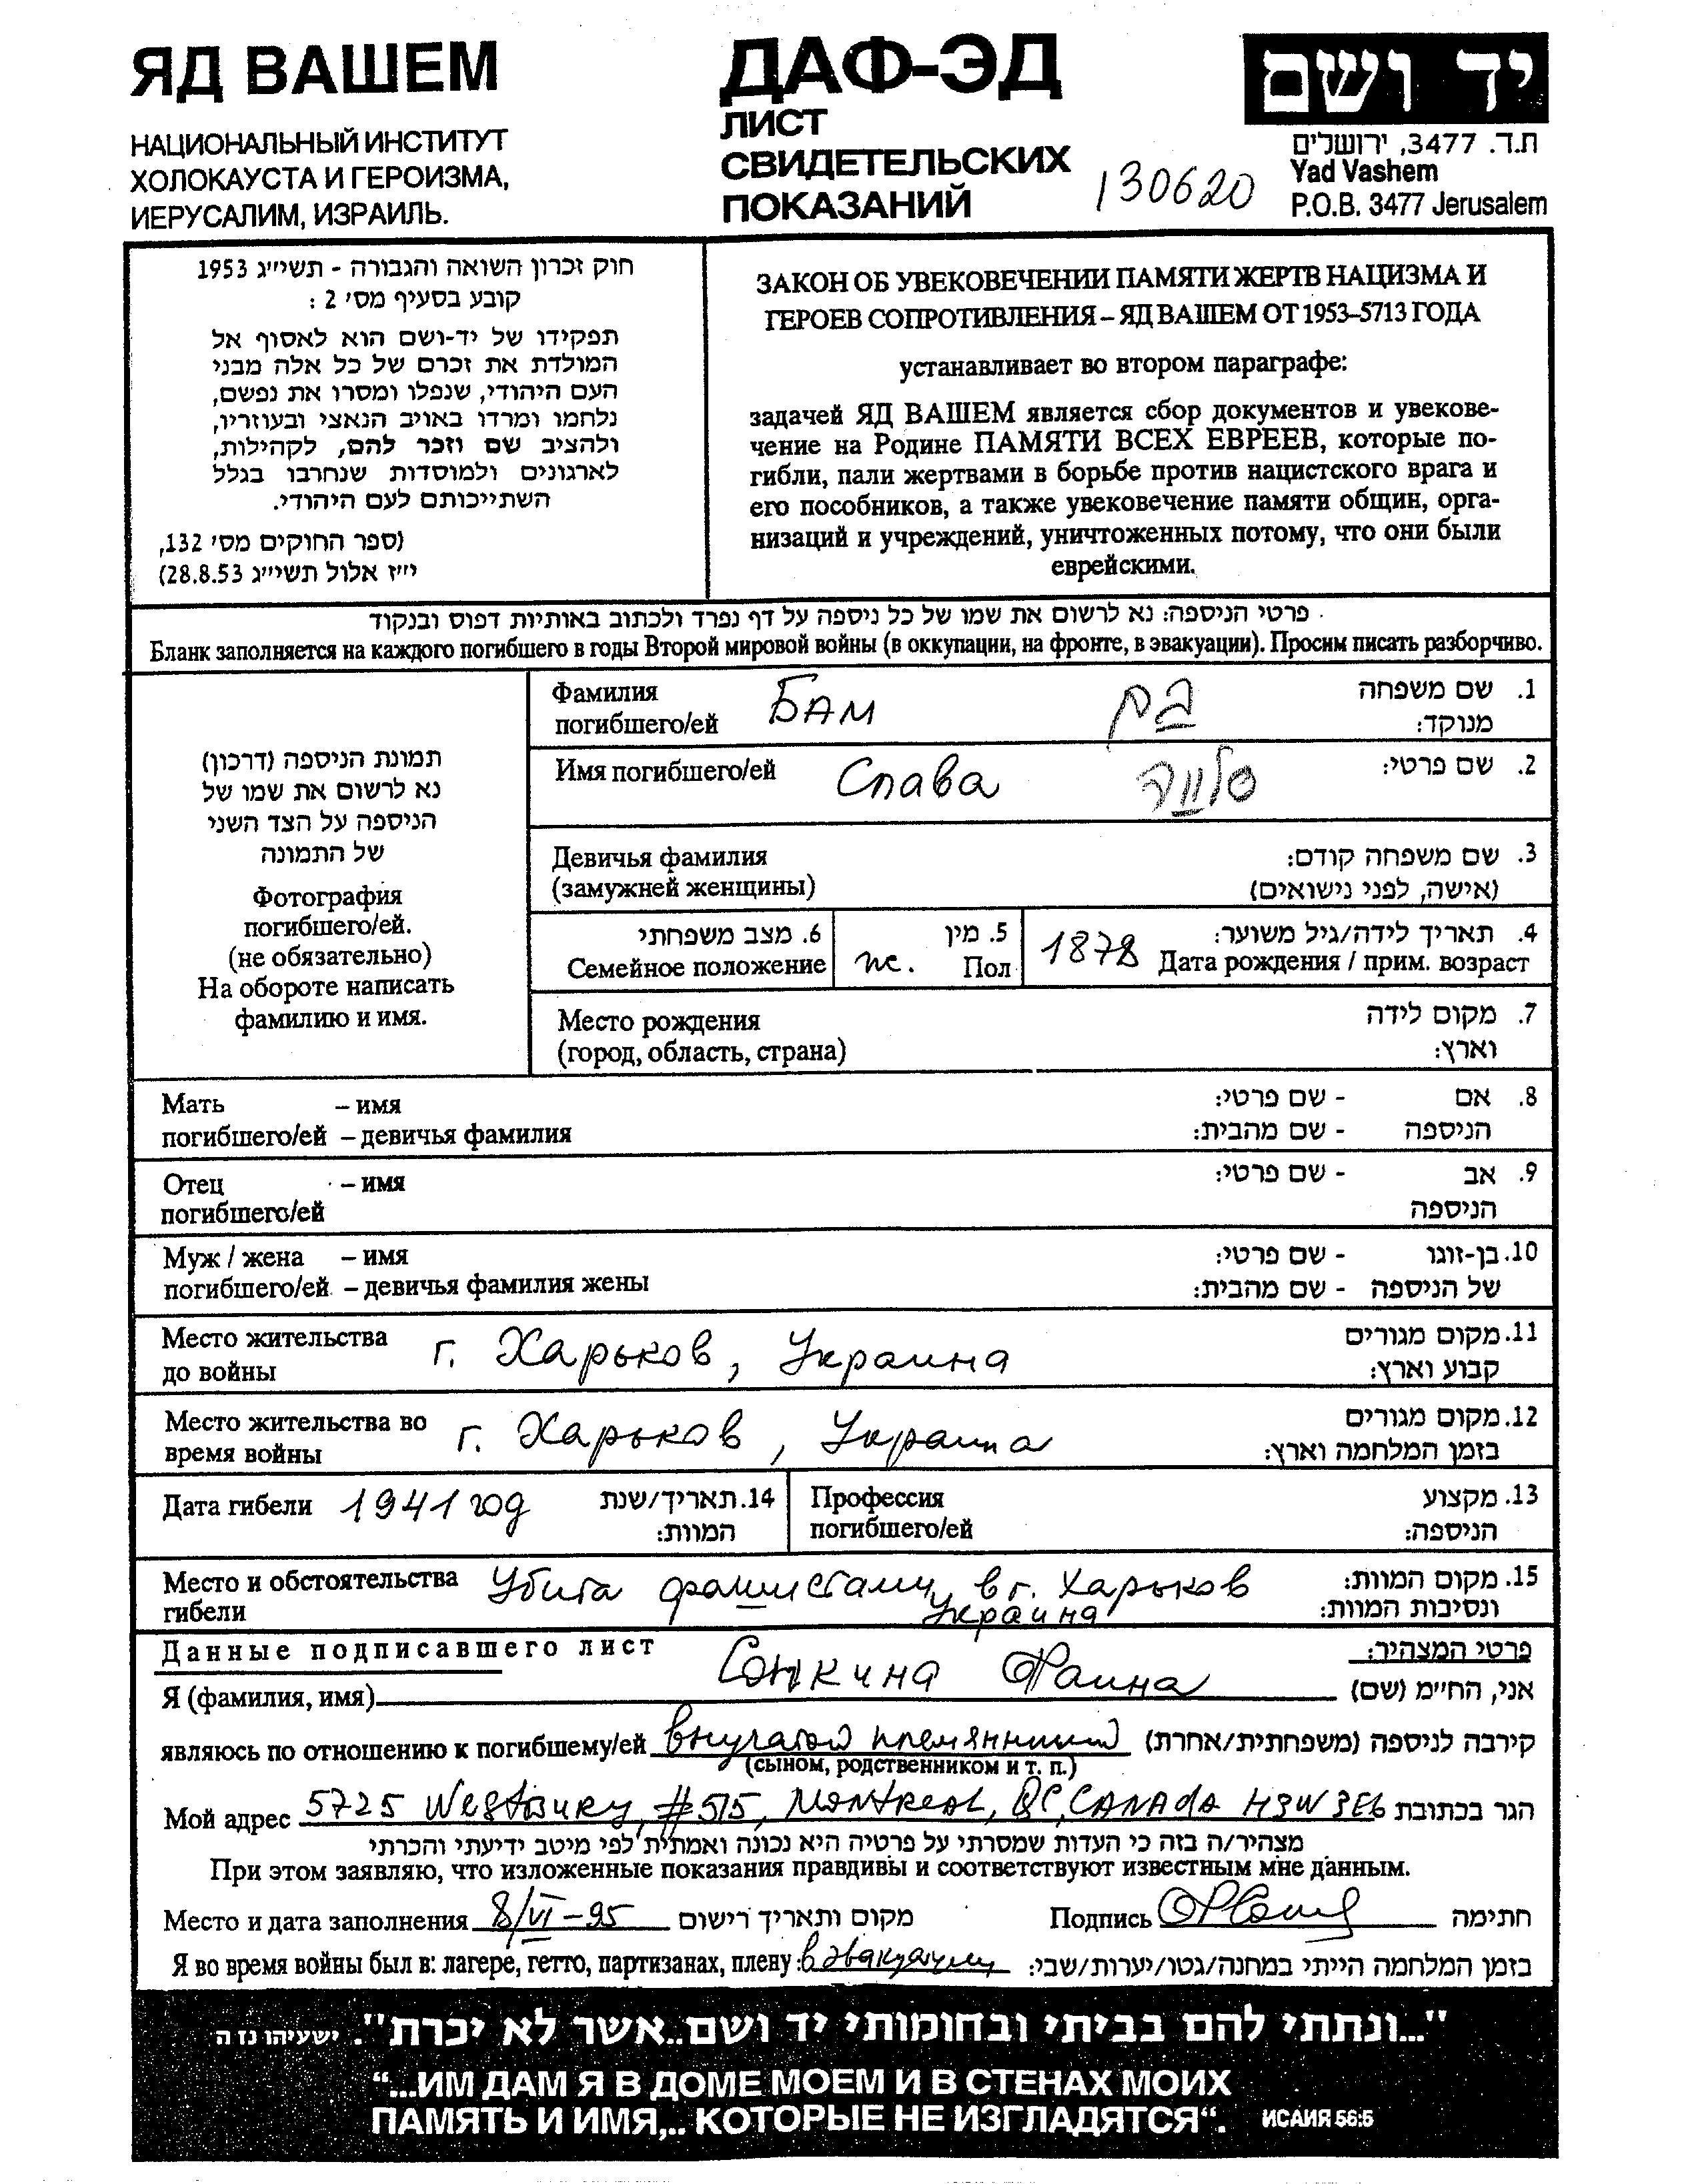 ЯД ВАШЕМ
НАЦИОНАЛЬНЫЙ ИНСТИТУТ
ХОЛОКАУСТА И ГЕРОИЗМА,
ИЕРУСАЛИМ, ИЗРАИЛЬ.
ДАФ-ЭД
ЛИСТ
СВИДЕТЕЛЬСКИХ
ПОКАЗАНИЙ
130620
יד ושם
ת.ד. 3477, ירושלים
Yad Vashem
P.O.B. 3477 Jerusalem
חוק זכרון השואה והגבורה - תשי״ג 1953
קובע בסעיף מס׳ 2 :
תפקידו של יד-ושם הוא לאסוף אל
המולדת את זכרם של כל אלה מבני
העם היהודי, שנפלו ומסרו את נפשם,
נלחמו ומרדו באויב הנאצי ובעוזריו,
ולהציב שם וזכר להם, לקהילות,
לארגונים ולמוסדות שנחרבו בגלל
השתייכותם לעם היהודי.
(ספר החוקים מס׳ 132,
י״ז אלול תשי״ג 28.8.53)
ЗАКОН ОБ УВЕКОВЕЧЕНИИ ПАМЯТИ ЖЕРТВ НАЦИЗМА И
ГЕРОЕВ СОПРОТИВЛЕНИЯ – ЯД ВАШЕМ ОТ 1953–5713 ГОДА
устанавливает во втором параграфе:
задачей ЯД ВАШЕМ является сбор документов и увекове-
чение на Родине ПАМЯТИ ВСЕХ ЕВРЕЕВ, которые по-
гибли, пали жертвами в борьбе против нацистского врага и
его пособников, а также увековечение памяти общин, орга-
низаций и учреждений, уничтоженных потому, что они были
еврейскими.
פרטי הניספה: נא לרשום את שמו של כל ניספה על דף נפרד ולכתוב באותיות דפוס ובנקוד
Бланк заполняется на каждого погибшего в годы Второй мировой войны (в оккупации, на фронте, в эвакуации). Просим писать разборчиво.
תמונת הניספה (דרכון)
נא לרשום את שמו של
הניספה על הצד השני
של התמונה
Фотография
погибшего/ей.
(не обязательно)
На обороте написать
фамилию и имя.
Фамилия БАМ בם 1. שם משפחה
погибшего/ей מנוקד:
Имя погибшего/ей Слава סלווה 2. שם פרטי:
Девичья фамилия 3. שם משפחה קודם:
(замужней женщины) (אישה, לפני נישואים)
6. מצב משפחתי 5. מין 4. תאריך לידה/גיל משוער:
Семейное положение ж. Пол 1878 Дата рождения / прим. возраст
Место рождения 7. מקום לידה
(город, область, страна) וארץ:
Мать – имя 8. אם - שם פרטי:
погибшего/ей – девичья фамилия הניספה - שם מהבית:
Отец – имя 9. אב - שם פרטי:
погибшего/ей הניספה
Муж / жена – имя 10. בן-זוגו - שם פרטי:
погибшего/ей – девичья фамилия жены של הניספה - שם מהבית:
Место жительства г. Харьков, Украина 11. מקום מגורים
до войны קבוע וארץ:
Место жительства во г. Харьков, Украина 12. מקום מגורים
время войны בזמן המלחמה וארץ:
Дата гибели 1941 год 14. תאריך/שנת
המוות:
Профессия 13. מקצוע
погибшего/ей הניספה:
Место и обстоятельства Убита фашистами в г. Харьков 15. מקום המוות:
гибели Украина ונסיבות המוות:
Данные подписавшего лист פרטי המצהיר:
Я (фамилия, имя) Фаина אני, החיימ (שם)
являюсь по отношению к погибшему/ей внучатой племянницей קירבה לניספה (משפחתית/אחרת)
(сыном, родственником и т. п.)
Мой адрес 5725 Westbury, #515, Montreal, QC, CANADA H3W 3E6 הגר בכתובת
מצהיר/ה בזה כי העדות שמסרתי על פרטיה היא נכונה ואמתית לפי מיטב ידיעתי והכרתי
При этом заявляю, что изложенные показания правдивы и соответствуют известным мне данным.
Место и дата заполнения 8/VI-95 מקום ותאריך רישום Подпись חתימה
Я во время войны был в: лагере, гетто, партизанах, плену: в эвакуации בזמן המלחמה הייתי במחנה/גטו/יערות/שבי:
"...ונתתי להם בביתי ובחומותי יד ושם..אשר לא יכרת". ישעיהו נז ה
“...ИМ ДАМ Я В ДОМЕ МОЕМ И В СТЕНАХ МОИХ
ПАМЯТЬ И ИМЯ,.. КОТОРЫЕ НЕ ИЗГЛАДЯТСЯ“. ИСАИЯ 56:5